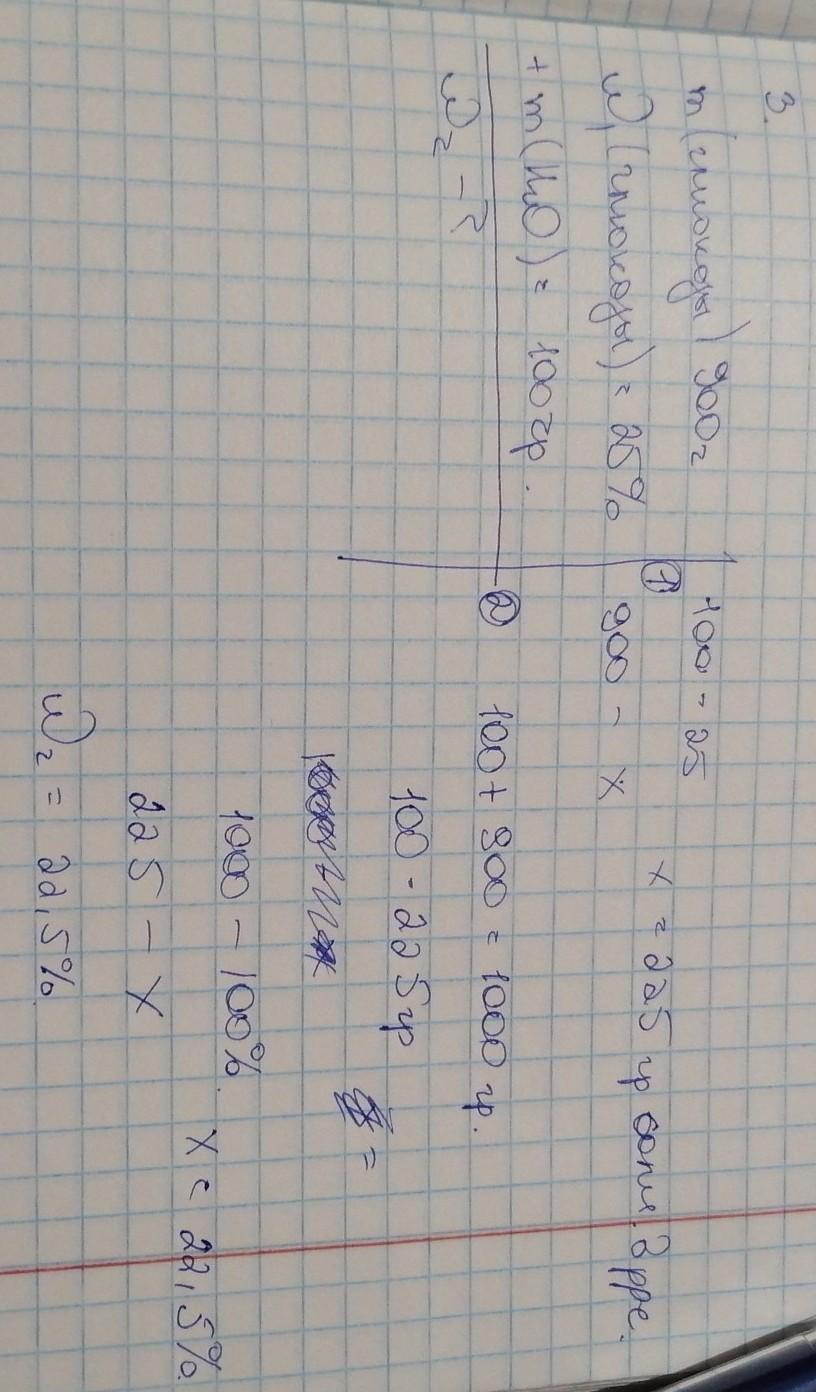 3.
m (глюкозы) 900г
W₁ (глюкозы) = 25%
+ m (H₂O) = 100 гр.
W₂ - ?
① 100 - 25
900 - x
x = 225 гр соли. В рре.
② 100 + 900 = 1000 гр.
100 - 225 гр
=
1000 - 100%
225 - x
x = 22,5%
W₂ = 22,5%